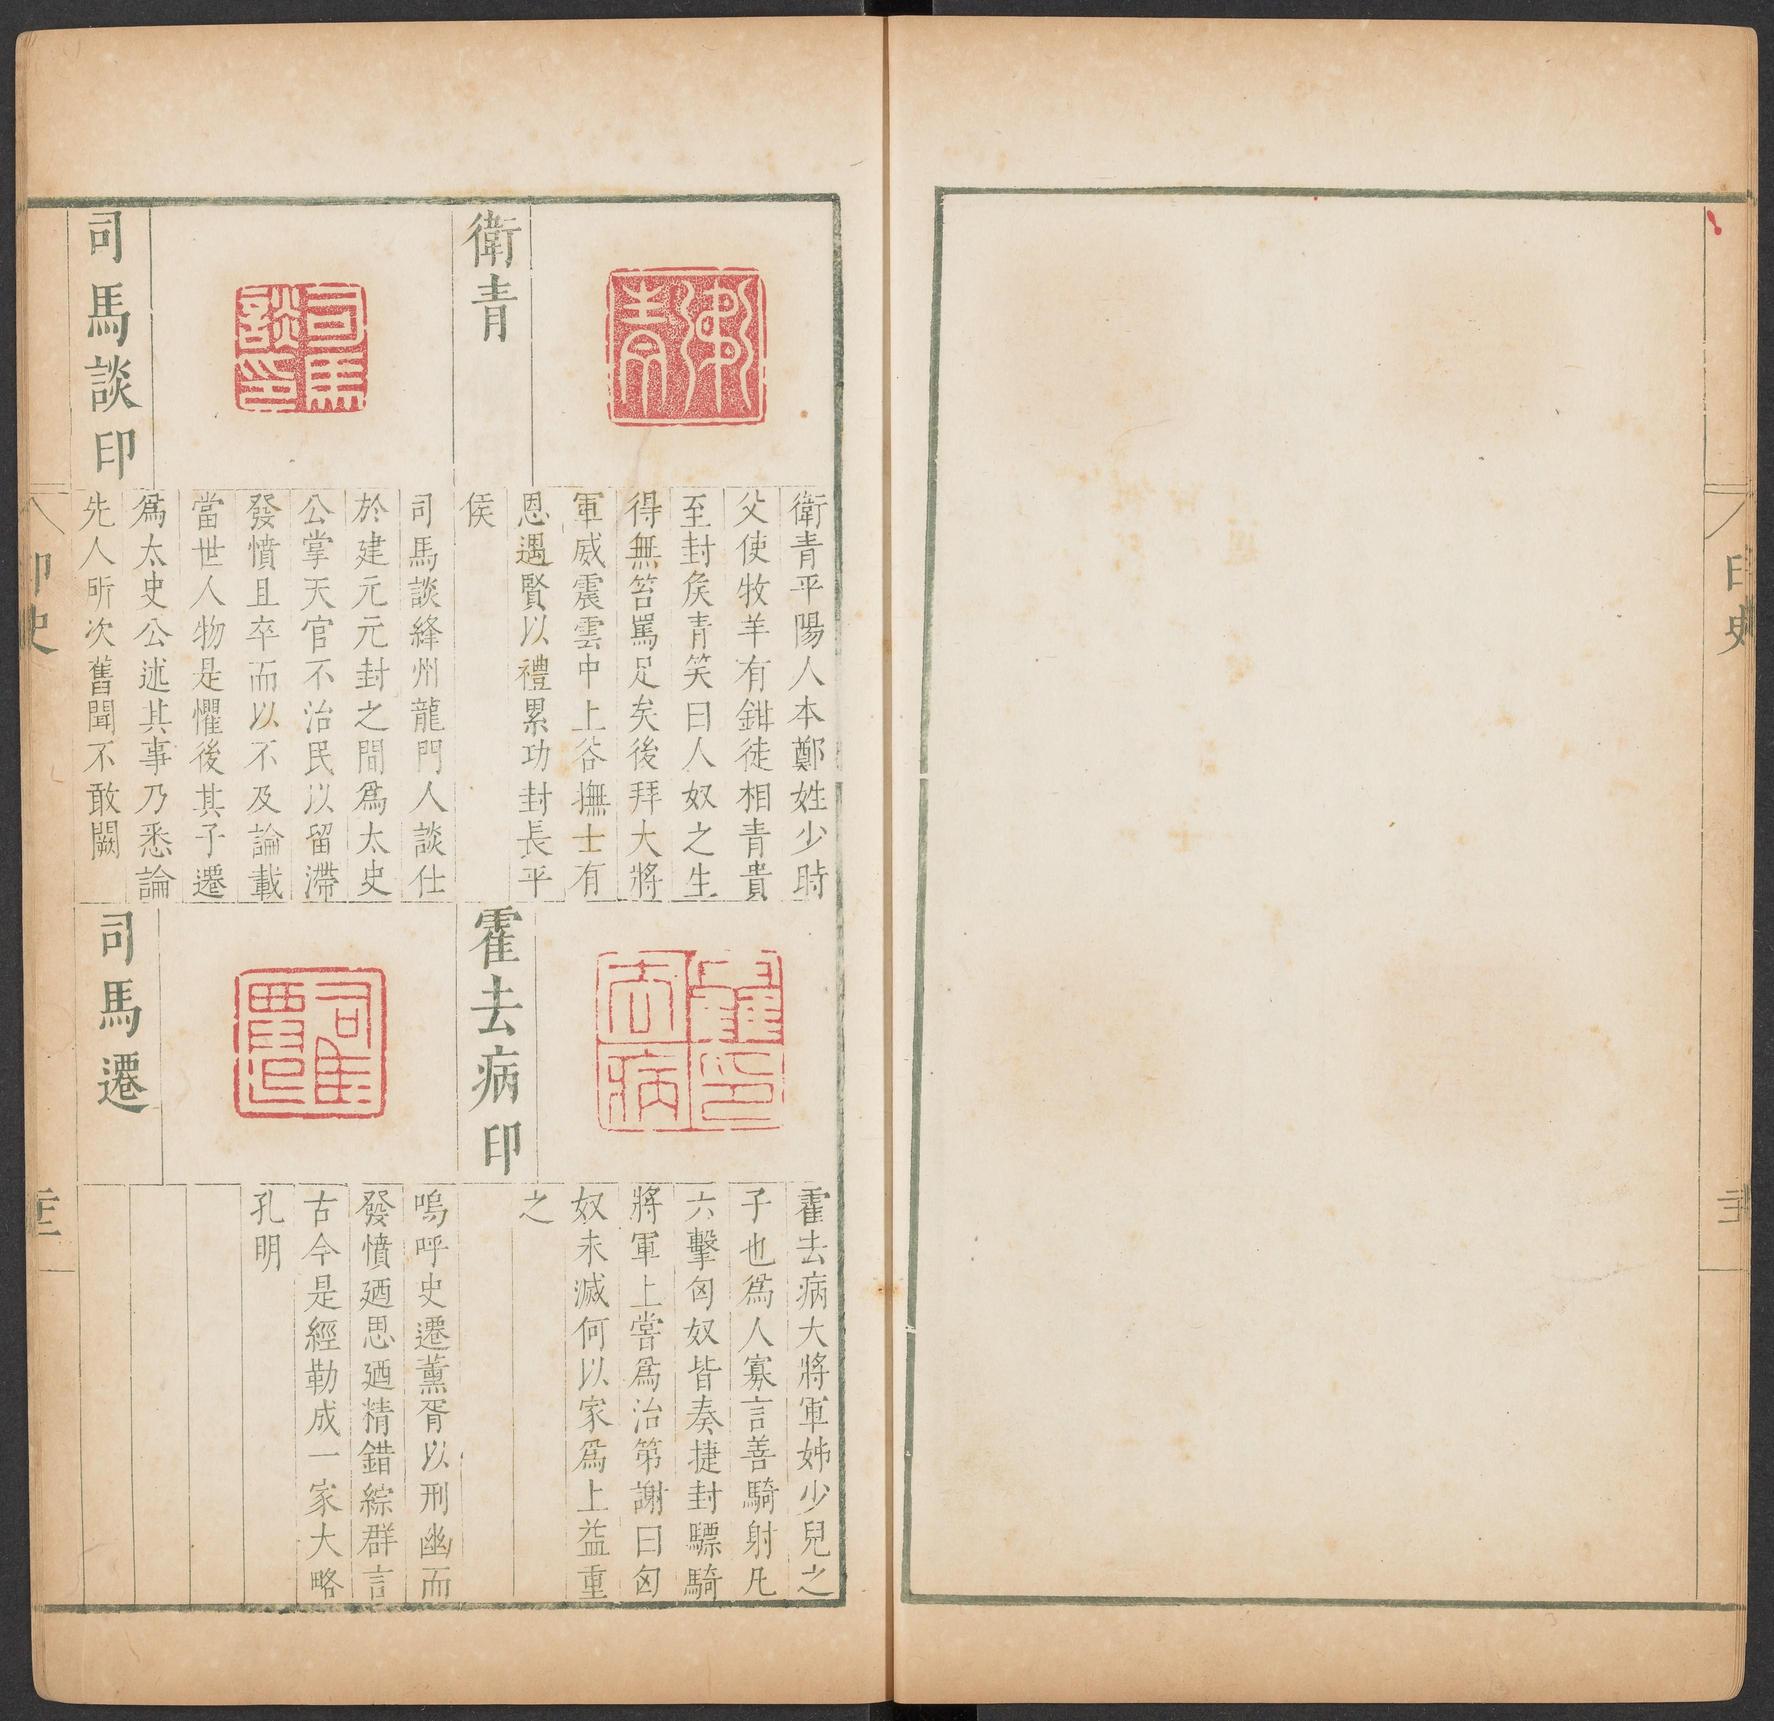 衛青
衛青平陽人本鄭姓少時
父使牧羊有鉗徒相青貴
至封矦青笑曰人奴之生
得無笞罵足矣後拜大將
軍威震雲中上谷撫士有
恩遇賢以禮累功封長平
侯
司馬談印
司馬談絳州龍門人談仕
於建元元封之間爲太史
公掌天官不治民以留滯
發憤且卒而以不及論載
當世人物是懼後其子遷
爲太史公述其事乃悉論
先人所次舊聞不敢闕
霍去病印
霍去病大將軍姊少兒之
子也爲人寡言善騎射凡
六擊匈奴皆奏捷封驃騎
將軍上嘗爲治第謝曰匈
奴未滅何以家爲上益重
之
司馬遷
嗚呼史遷薰胥以刑幽而
發憤廼思廼精錯綜群言
古今是經勒成一家大略
孔明
印史
印史